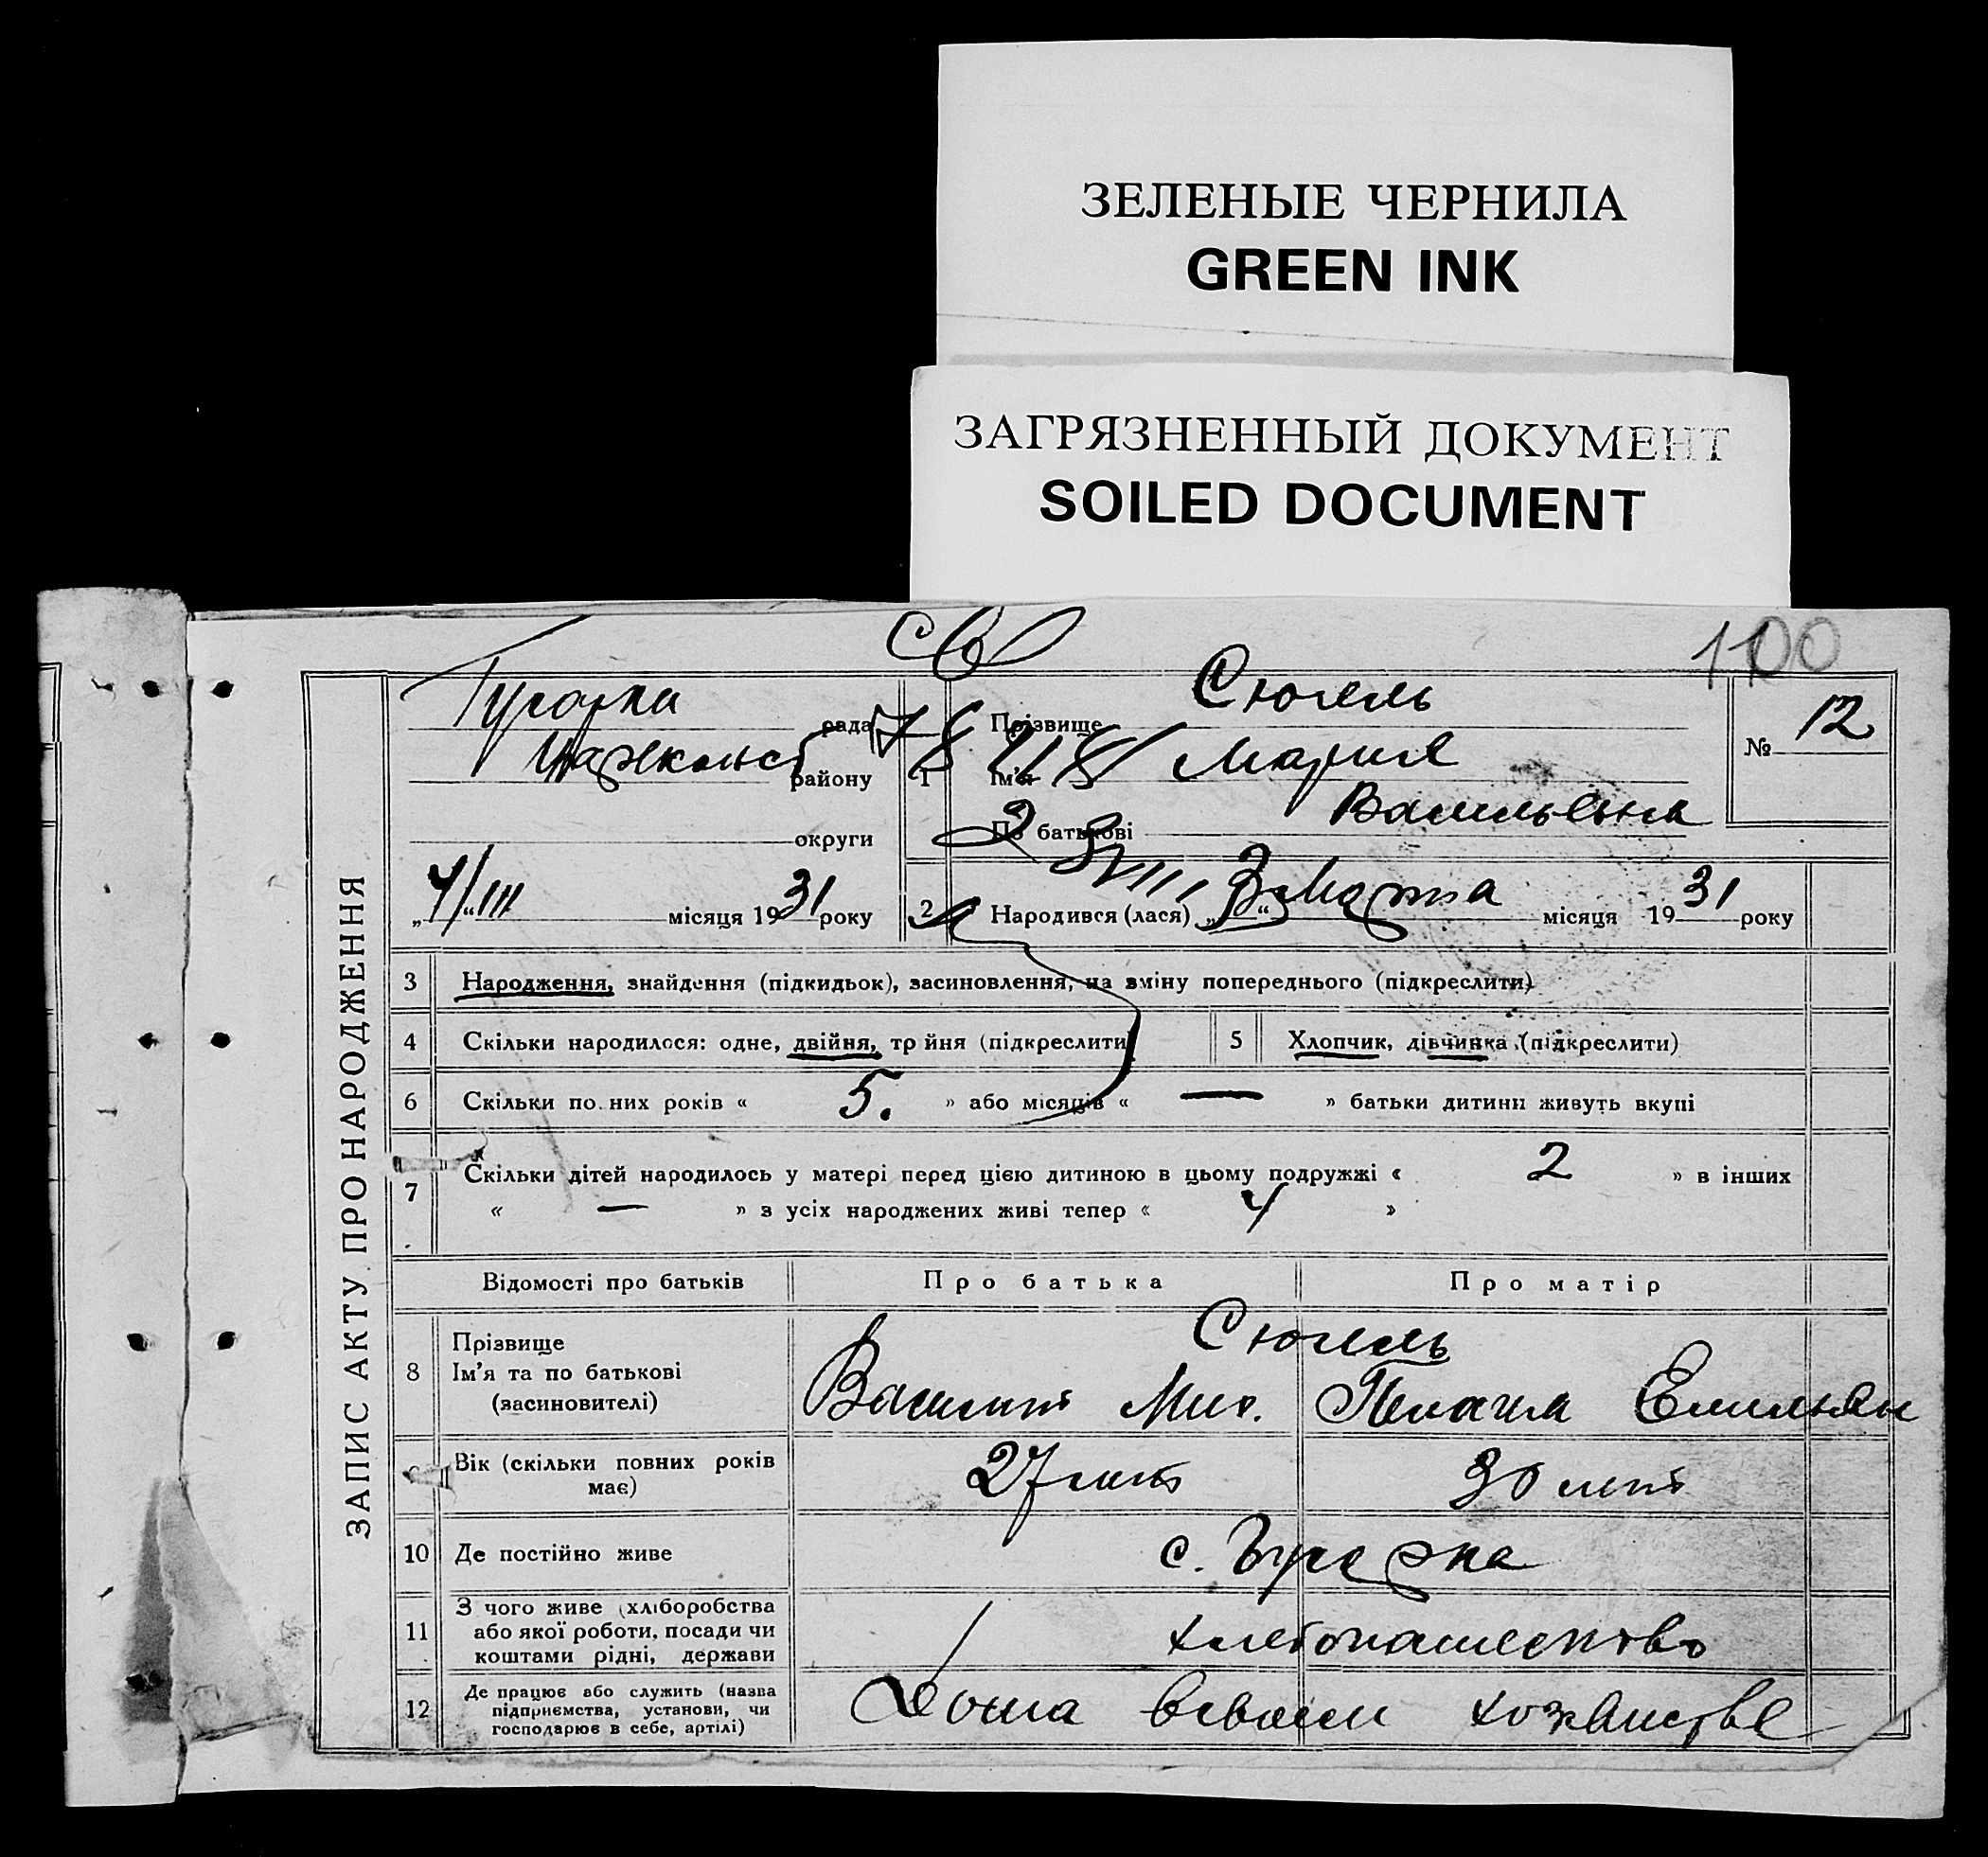 ЗЕЛЕНЫЕ ЧЕРНИЛА
GREEN INK
ЗАГРЯЗНЕННЫЙ ДОКУМЕНТ
SOILED DOCUMENT
100
ЗАПИС АКТУ ПРО НАРОДЖЕННЯ
рада
району
округи
„4/“ III місяця 1931 року
1
Прізвище Сюгель
Ім'я Мария
По батькові Васильевна
№ 12
2 Народився (лася) „3“ Марта місяця 1931 року
3 Народження, знайдення (підкидьок), засиновлення, на зміну попереднього (підкреслити)
4 Скільки народилося: одне, двійня, тр йня (підкреслити)
5 Хлопчик, дівчинка (підкреслити)
6 Скільки по.них років « 5. » або місяців « — » батьки дитини живуть вкупі
7 Скільки дітей народилось у матері перед цією дитиною в цьому подружжі « 2 » в інших
« — » з усіх народжених живі тепер « 4 »
Відомості про батьків Про батька Про матір
8 Прізвище Сюгель
Ім'я та по батькові
(засиновителі)
Василий Мих. Пелагия Емильян
Вік (скільки повних років
має)
27 лет 30 лет
10 Де постійно живе с.
11 З чого живе (хліборобства
або якої роботи, посади чи
коштами рідні, держави
хлебопашество
12 Де працює або служить (назва
підприємства, установи, чи
господарює в себе, артілі)
Дома в своем хозяистве